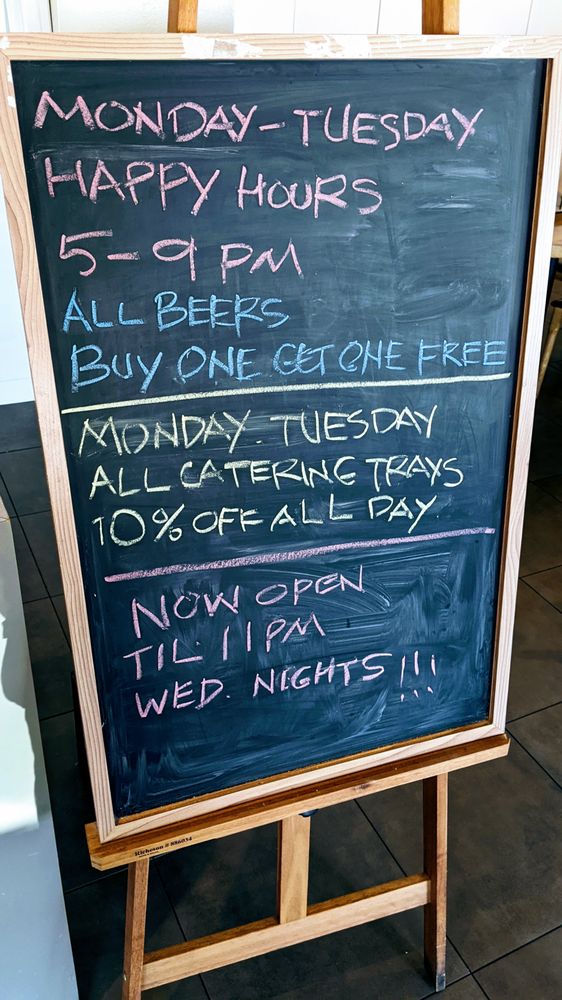 MONDAY-TUESDAY
HAPPY HOURS
5-9 PM
ALL BEERS
BUY ONE GET ONE FREE
MONDAY. TUESDAY
ALL CATERING TRAYS
10% OFF ALL DAY
NOW OPEN
TIL. 11PM
WED. NIGHTS !!!
Richeson # 886034